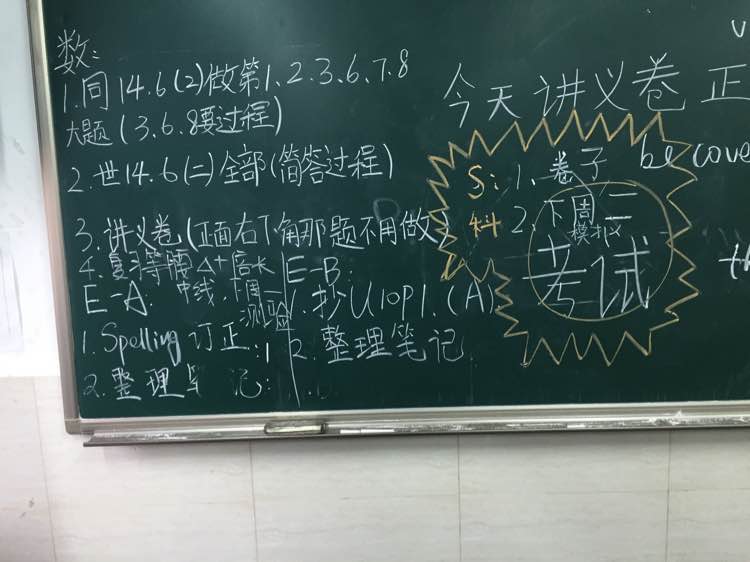 数:
1.同14.6(2)做第1、2.3、6、7.8
大题(3、6.8要过程)
2.世14.6(二)全部(简答过程)
3.讲义卷(正面右下角那题不用做)
4.复习等腰△+倍长
中线,下周一
测验
E-A.
1.Spelling订正:1
2.整理笔记:
E-B:
1.抄U10P1.(A)
2.整理笔记
今天讲义卷正
be cove
th
S:1、卷子
科 2、下周二
模拟
考试